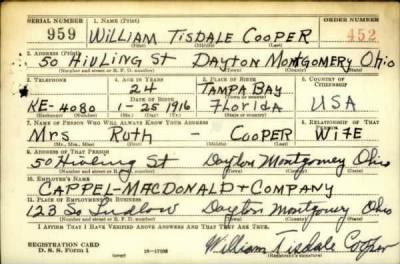 SERIAL NUMBER 1. NAME (Print) ORDER NUMBER
959 WILLIAM TISDALE COOPER 452
(First) (Middle) (Last)
2. ADDRESS (Print)
50 HIVLING ST DAYTON MONTGOMERY OHIO
(Number and street or R. F. D. number) (Town) (County) (State)
3. TELEPHONE 4. AGE IN YEARS 5. PLACE OF BIRTH 6. COUNTRY OF CITIZENSHIP
24 TAMPA BAY
(Town or county)
KE-4080 DATE OF BIRTH 1-25-1916 FLORIDA USA
(Exchange) (Number) (Mo.) (Day) (Yr.) (State or country)
7. NAME OF PERSON WHO WILL ALWAYS KNOW YOUR ADDRESS 8. RELATIONSHIP OF THAT PERSON
Mrs RUTH - COOPER WIFE
(Mr., Mrs., Miss) (First) (Middle) (Last)
9. ADDRESS OF THAT PERSON
50 Hivling St Dayton Montgomery Ohio
(Number and street or R. F. D. number) (Town) (County) (State)
10. EMPLOYER'S NAME
CAPPEL-MACDONALD + COMPANY
11. PLACE OF EMPLOYMENT OR BUSINESS
123 So Ludlow Dayton Montgomery Ohio
(Number and street or R. F. D. number) (Town) (County) (State)
I AFFIRM THAT I HAVE VERIFIED ABOVE ANSWERS AND THAT THEY ARE TRUE.
REGISTRATION CARD
D. S. S. Form 1 16-17105 William Tisdale Cooper
(Registrant's signature)